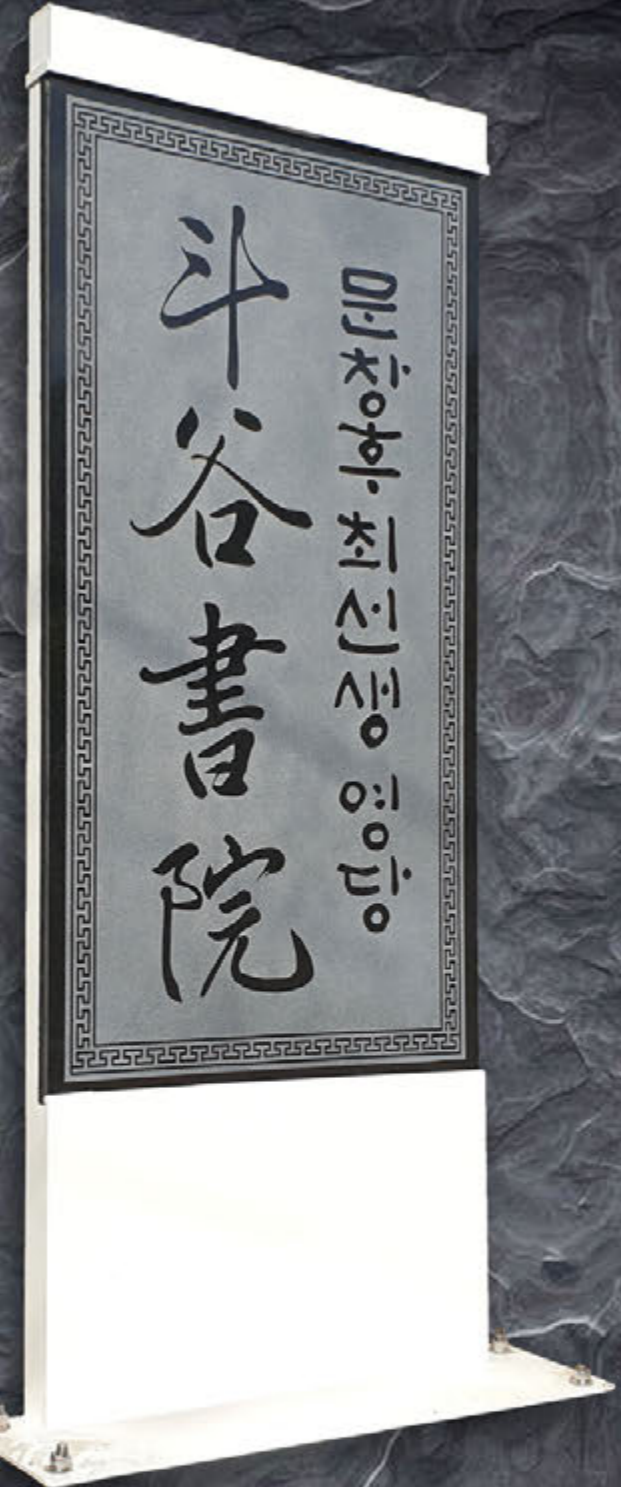 문창후 최선생 영당
斗谷書院